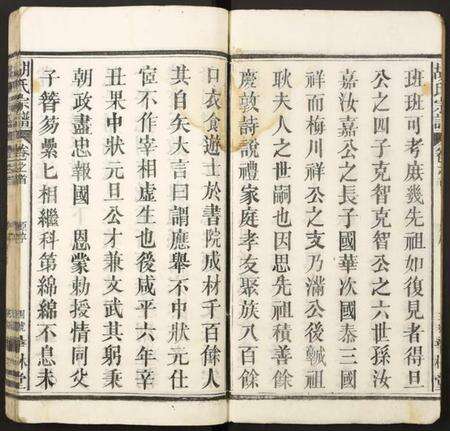 班班可考庶幾先祖如復見者得旦
公之四子克智克智公之六世孫汝
嘉汝嘉公之長子國華次國泰三國
祥而梅川祥公之支乃滿公後諴祖
耿夫人之世嗣也因思先祖積善餘
慶敦詩說禮家庭孝友聚族八百餘
口衣食遊士於書院成材千百餘人
其自矢大言曰謂應舉不中狀元仕
宦不作宰相虛生也後咸平六年辛
丑果中狀元旦公才兼文武其躬秉
朝政盡忠報國 恩蒙勅授情同父
子簪笏纍匕相繼科第綿綿不息未
胡氏宗譜 卷之首
華林堂
胡氏宗譜